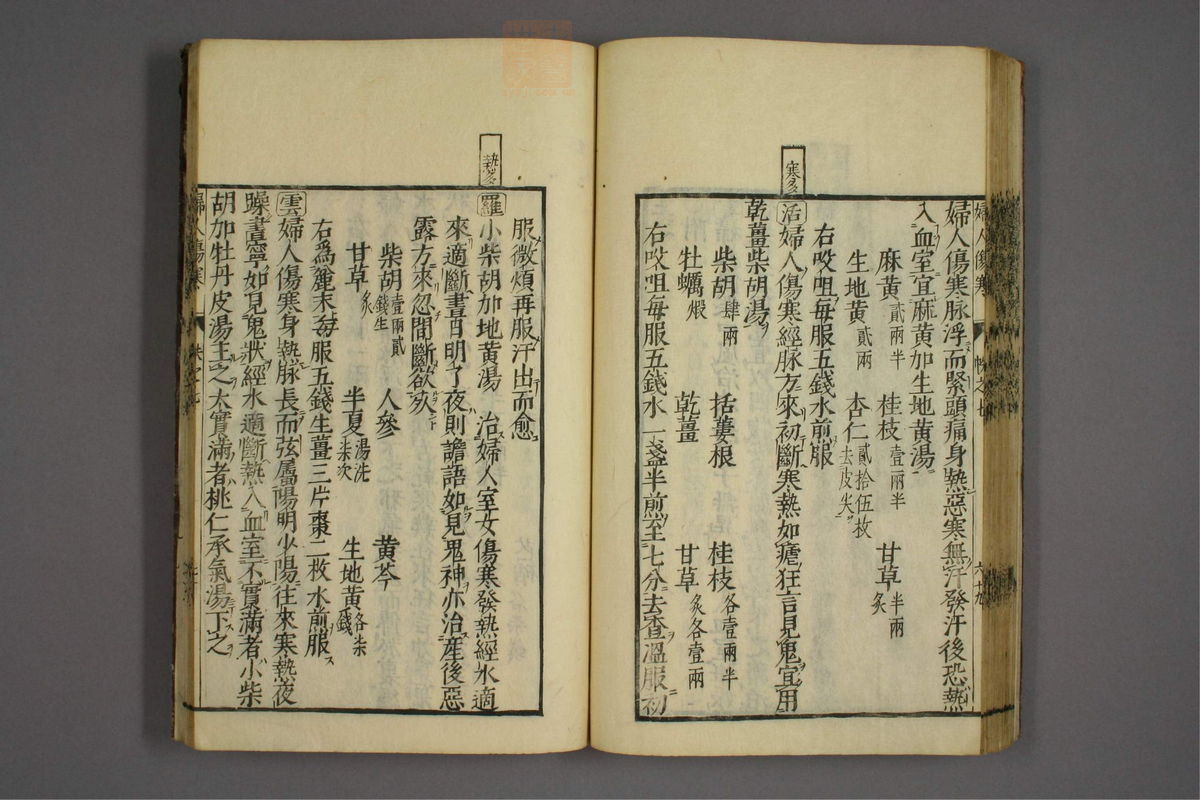 婦人傷寒脉浮而緊頭痛身熱惡寒無汗發汗後恐熱
入血室宜麻黄加生地黄湯
麻黄貳兩半 桂枝壹兩半 甘草半兩炙
生地黄貳兩 杏仁貳拾伍枚去皮尖
右㕮咀每服五錢水煎服
寒多
活婦人傷寒經脉方來初斷寒熱如瘧狂言見鬼宜用
乾薑柴胡湯
柴胡肆兩 括蔞根 桂枝各壹兩半
牡蠣煅 乾薑 甘草炙各壹兩
右㕮咀每服五錢水一盞半煎至七分去査溫服初
服微煩再服汗出而愈
熱多
羅小柴胡加地黄湯 治婦人室女傷寒發熱經水適
來適斷晝日明了夜則譫語如見鬼神亦治産後惡
露方來忽間斷欲死
柴胡壹兩貳錢生 人參 黄芩
甘草炙 半夏湯洗柒次 生地黄各柒錢
右爲麄末每服五錢生薑三片棗二枚水煎服
雲婦人傷寒身熱脉長而弦屬陽明少陽往來寒熱夜
躁晝寧如見鬼狀經水適斷熱入血室不實滿者小柴
胡加牡丹皮湯主之大實滿者桃仁承氣湯下之
婦人傷寒